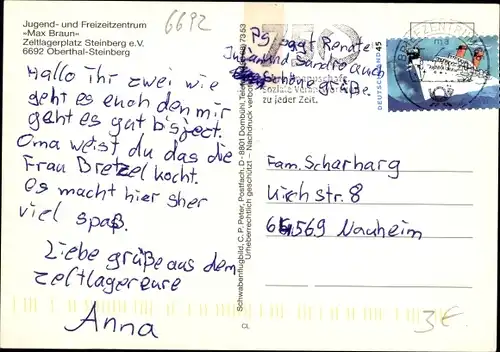 Jugend- und Freizeitzentrum
»Max Braun«
Zeltlagerplatz Steinberg e.V.
6692 Oberthal-Steinberg
6692
Hallo ihr zwei wie
geht es euch den mir
geht es gut bisject.
Oma weist du das die
Frau Bretzel kocht.
es macht hier sher
viel spaß.
Liebe grüße aus dem
zeltlagereure
Anna
Schwabenflugbild, C. P. Peter, Postfach, D - 8801 Dombühl,
Urheberrechtlich geschützt – Nachdruck verboten
CL
Ps sagt Renate
Jugen und Sandro auch
schöne grüße.
750
zu jeder Zeit.
DEUTSCHLAND 45
BRIEFZENTRUM
Fam. Scharharg
Kirchstr. 8
64569 Nauheim
3€